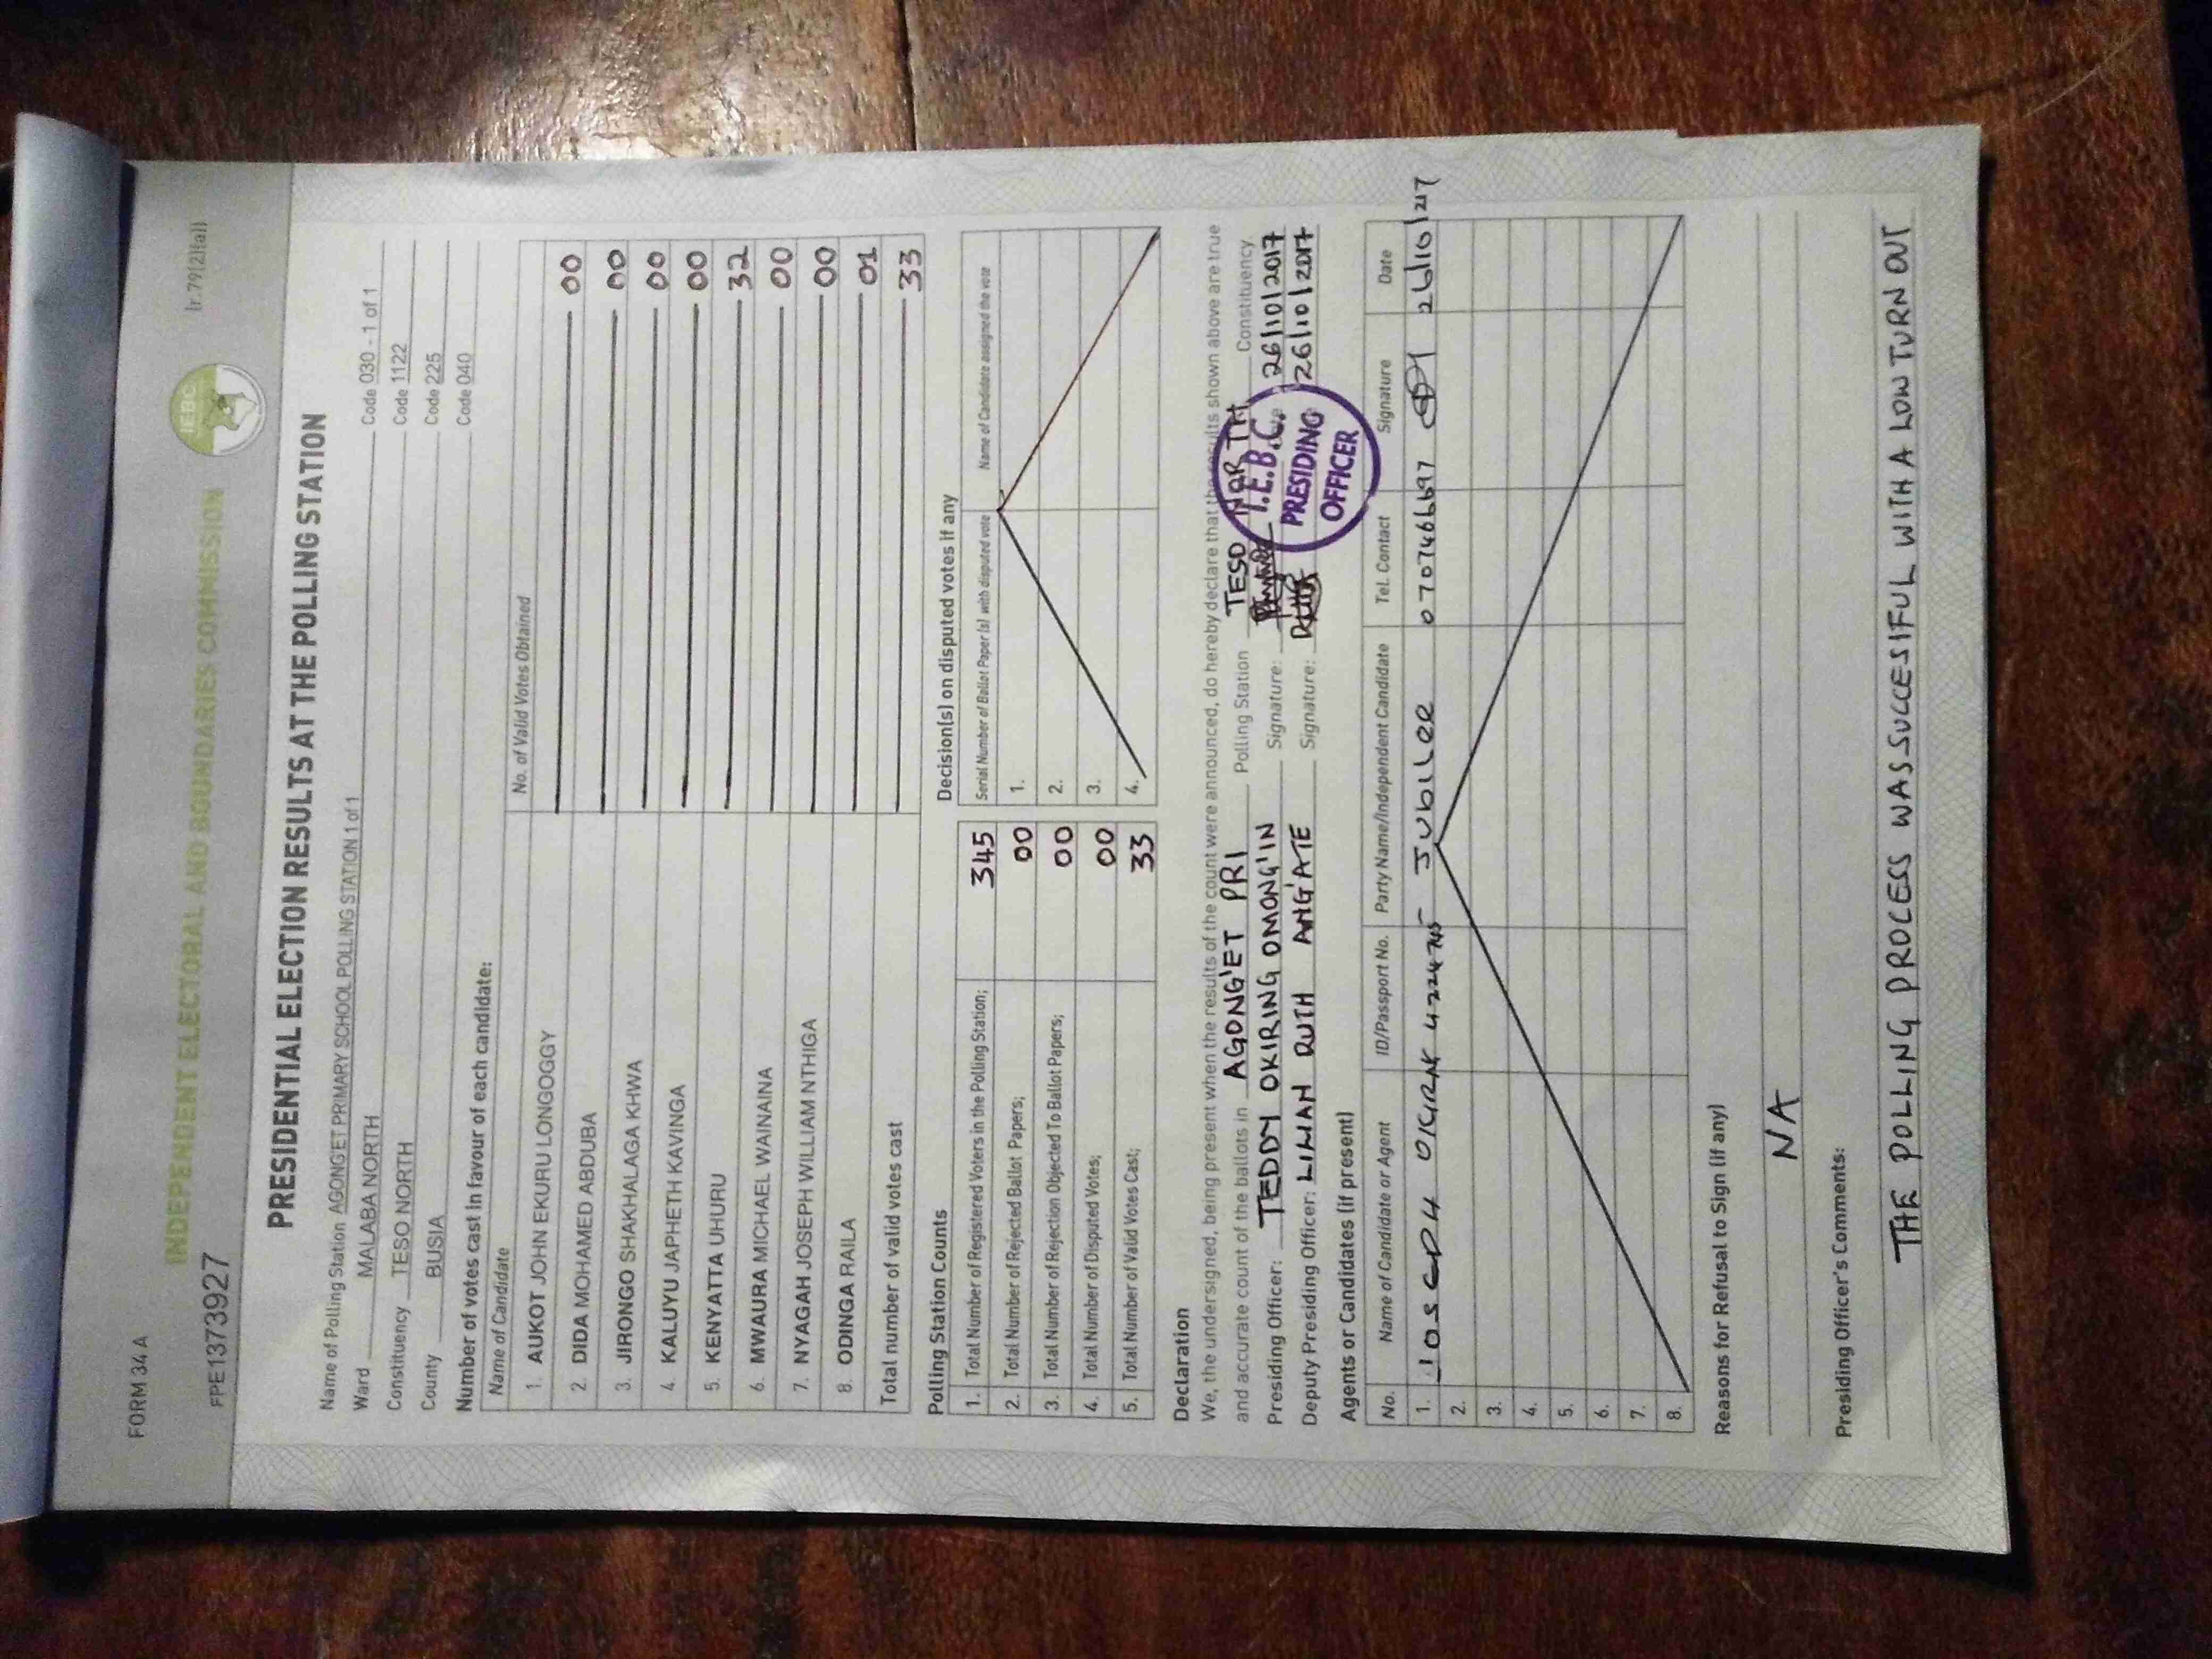 FORM 34 A
(r.79(2)(a))
INDEPENDENT ELECTORAL AND BOUNDARIES COMMISSION
IEBC
FPE1373927
PRESIDENTIAL ELECTION RESULTS AT THE POLLING STATION
Name of Polling Station AGONG'ET PRIMARY SCHOOL POLLING STATION 1 of 1 Code 030 - 1 of 1
Ward MALABA NORTH Code 1122
Constituency TESO NORTH Code 225
County BUSIA Code 040
Number of votes cast in favour of each candidate:
Name of Candidate No. of Valid Votes Obtained
1. AUKOT JOHN EKURU LONGOGGY 00
2. DIDA MOHAMED ABDUBA 00
3. JIRONGO SHAKHALAGA KHWA 00
4. KALUYU JAPHETH KAVINGA 00
5. KENYATTA UHURU 32
6. MWAURA MICHAEL WAINAINA 00
7. NYAGAH JOSEPH WILLIAM NTHIGA 00
8. ODINGA RAILA 01
Total number of valid votes cast 33
Polling Station Counts
1. Total Number of Registered Voters in the Polling Station; 345
2. Total Number of Rejected Ballot Papers; 00
3. Total Number of Rejection Objected To Ballot Papers; 00
4. Total Number of Disputed Votes; 00
5. Total Number of Valid Votes Cast; 33
Decision(s) on disputed votes if any
Serial Number of Ballot Paper (s) with disputed vote Name of Candidate assigned the vote
1.
2.
3.
4.
Declaration
We, the undersigned, being present when the results of the count were announced, do hereby declare that the results shown above are true
and accurate count of the ballots in AGONG'ET PRI Polling Station TESO NORTH Constituency.
Presiding Officer: TEDDY OKIRING OMONG'IN Signature: Date 26/10/2017
Deputy Presiding Officer: LINAH RUTH ANG'ATE Signature: 26/10/2017
I.E.B.C.
PRESIDING
OFFICER
Agents or Candidates (if present)
No. Name of Candidate or Agent ID/Passport No. Party Name/Independent Candidate Tel. Contact Signature Date
1. JUbiLee 0707466697 26/10/217
2.
3.
4.
5.
6.
7.
8.
Reasons for Refusal to Sign (if any)
NA
Presiding Officer's Comments:
THE POLLING PROCESS WAS SUCCESSFUL WITH A LOW TURN OUT